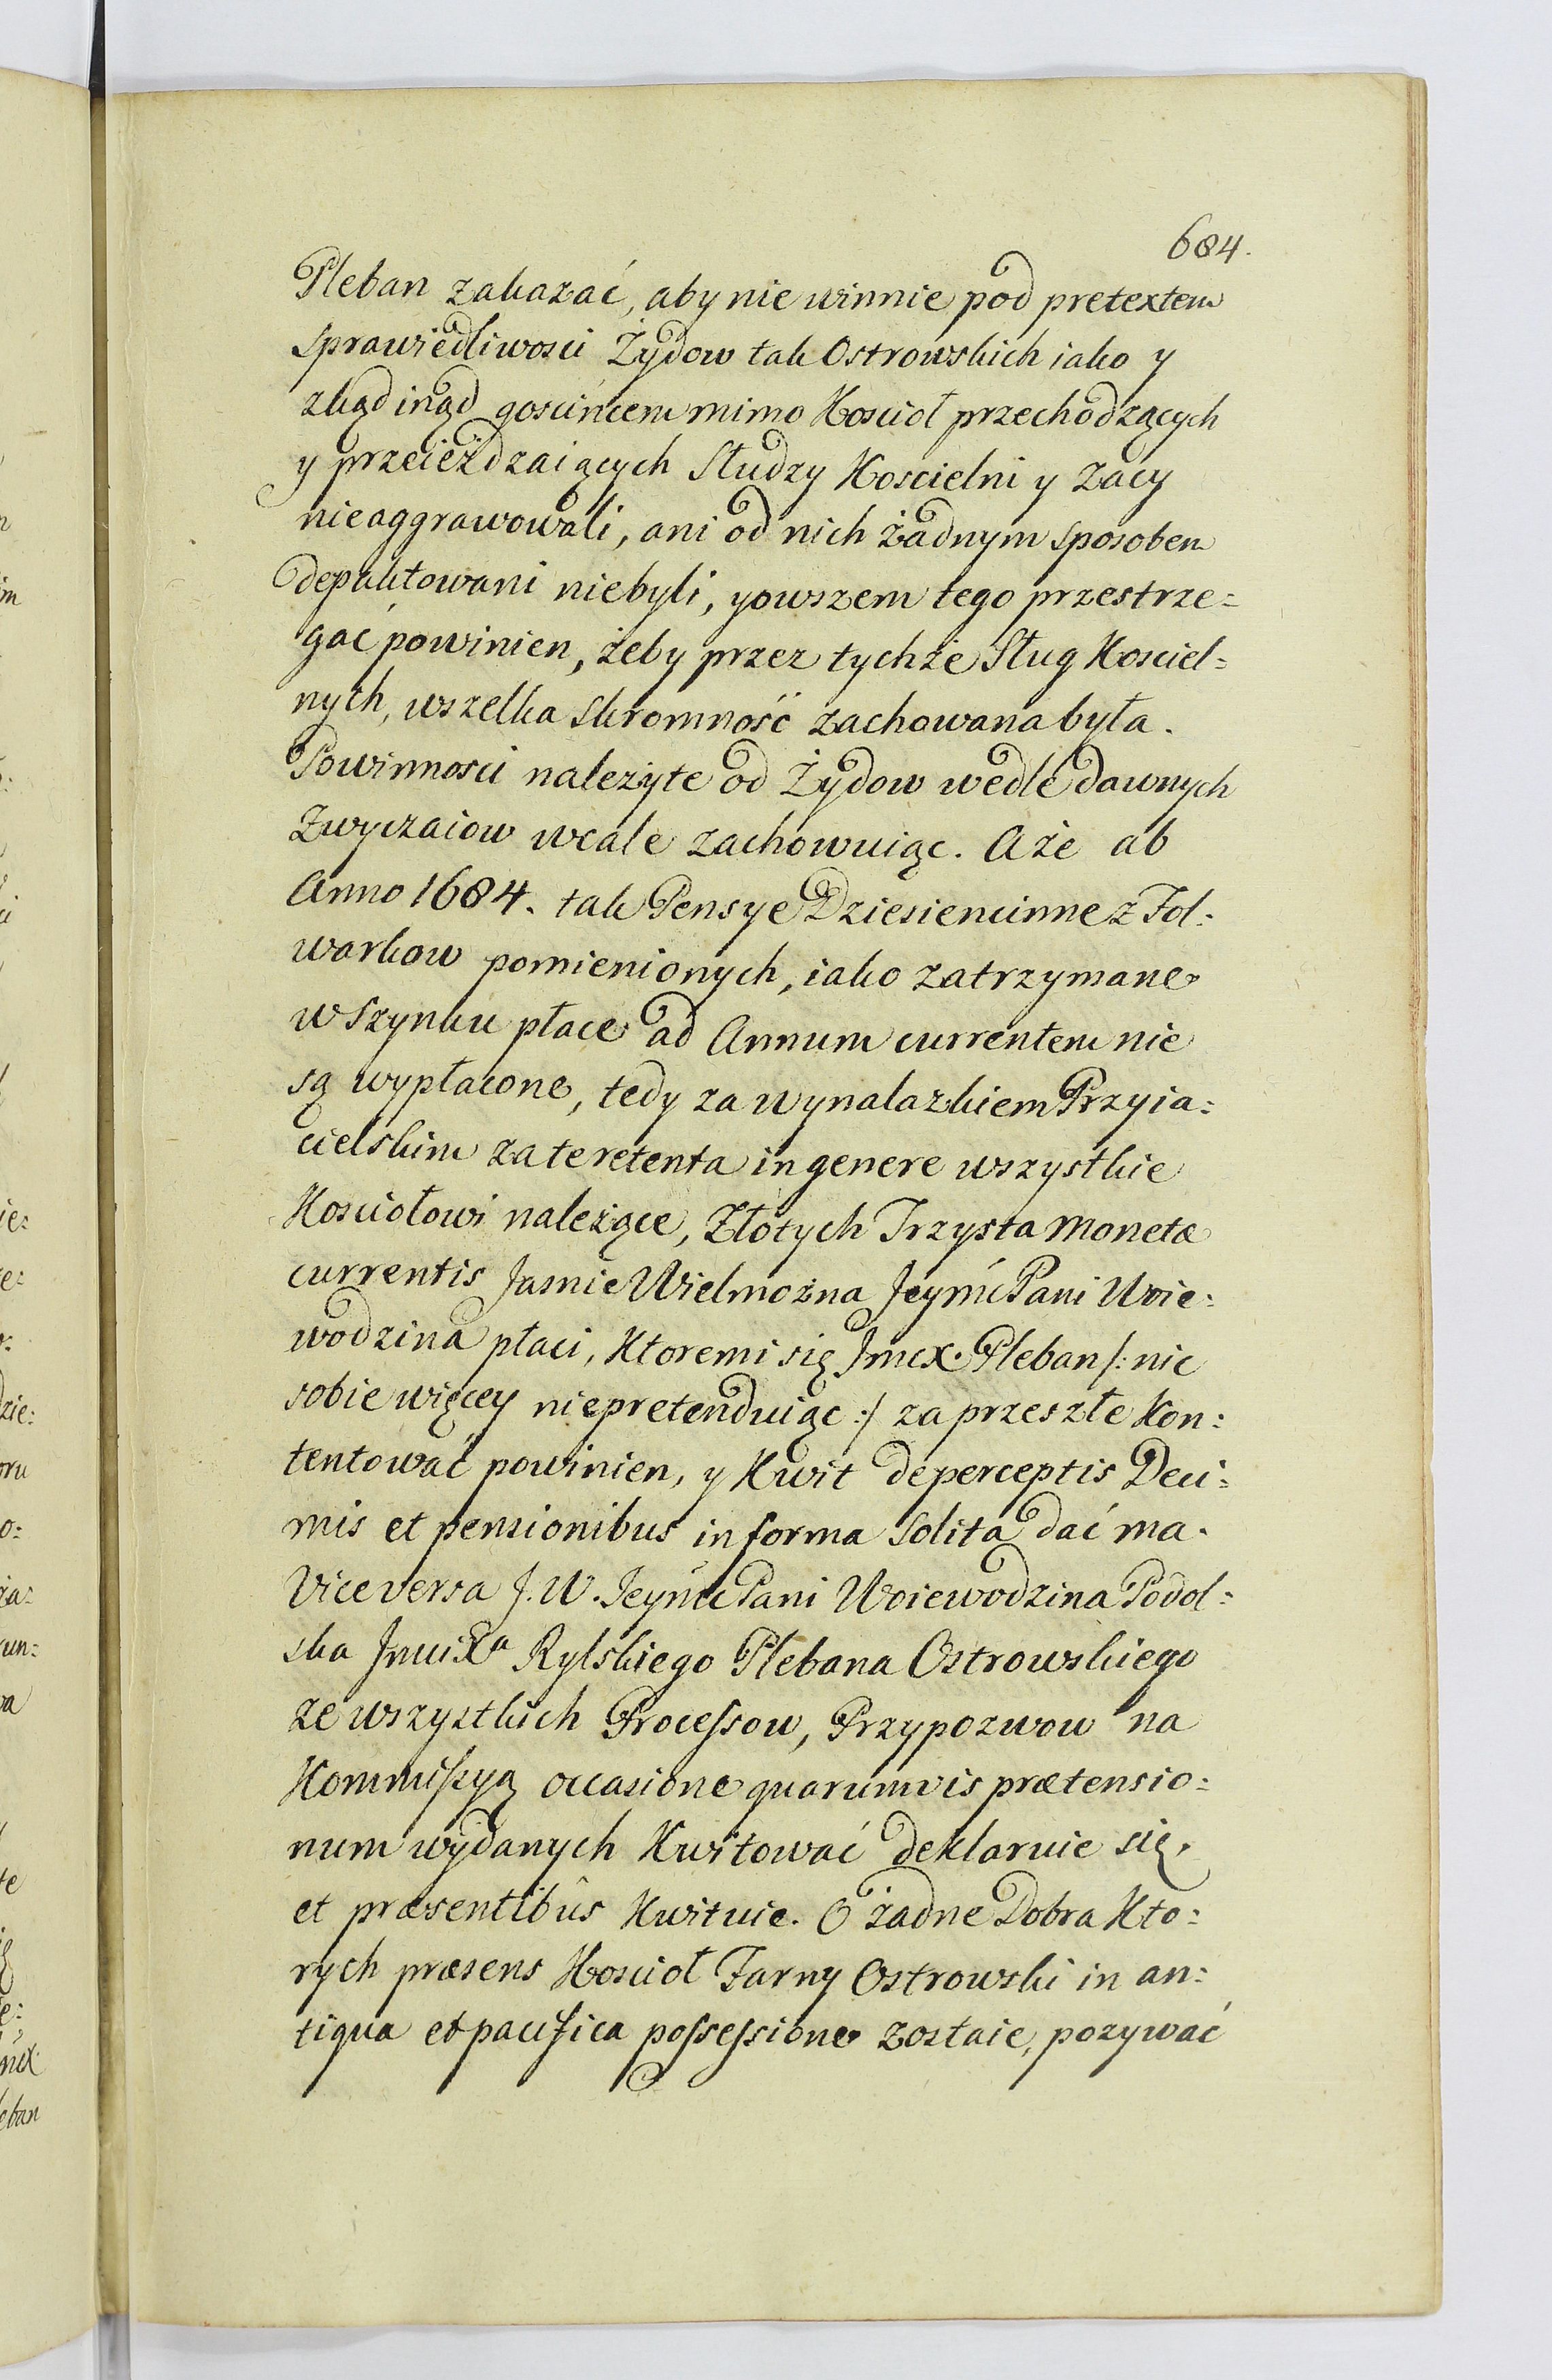 684.
Pleban zakazać, aby nie winnie pod pretextem
sprawiedliwosci Żydow tak Ostrowskich iako y
zkąd inąd goscińcem mimo Koscioł przechodzących
y przeieżdzaiących Słudzy Koscielni y Żacy
nieaggrawowali, ani od nich żadnym sposobem
depaktowani niebyli, yowszem tego przestrze=
gać powinien, żeby przez tychże Sług Kosciel=
nych, wszelka skromność zachowana była.
Powinnosci należyte od Żydow wedle dawnych
Zwyczaiow wcale zachowuiąc. Aże ab
Anno 1684. tak Pensye Dziesiencinne z Fol=
warkow pomienionych, iako zatrzymane
w Szynku płace ad Annum currentem nie
są wypłacone, tedy za wynalazkiem Przyia=
cielskim za te retenta in genere wszystkie
Kosciołowi należące, Złotych Trzysta Monetæ
currentis Jasnie Wielmożna Jeymć Pani Woie=
wodzina płaci, Ktoremi się Jmcx. Pleban /: nic
sobie więcey niepretenduiąc :/ za przeszłe Kon=
tentować powinien, y Kwit de perceptis Deci=
mis et pensionibus in forma solita dać ma.
Vice versa J. W. Jeymć Pani Woiewodzina Podol=
ska JmciXa Rylskiego Plebana Ostrowskiego
ze wszystkich Processow, Przypozwow na
Kommissyą occasione quarumvis prætensio=
num wydanych Kwitować deklaruie się,
et præsentibus Kwituie. O żadne Dobra Kto=
rych præsens Koscioł Farny Ostrowski in an=
tiqua et pacifica possessione zostaie, pozywać